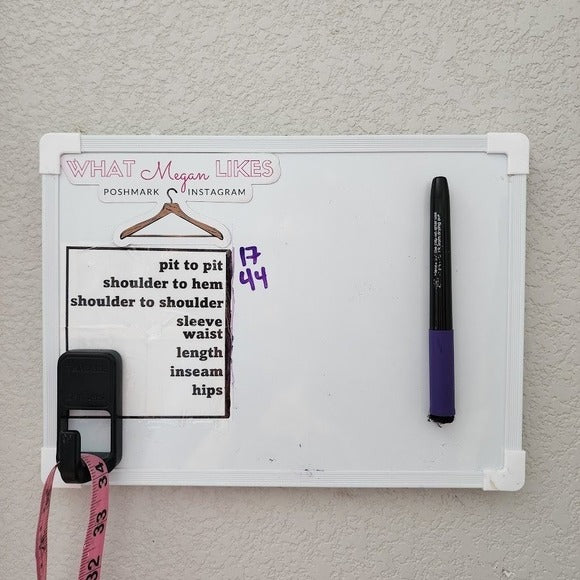 WHAT Megan LIKES
POSHMARK INSTAGRAM
pit to pit 17
shoulder to hem 44
shoulder to shoulder
sleeve
waist
length
inseam
hips
34
33
32